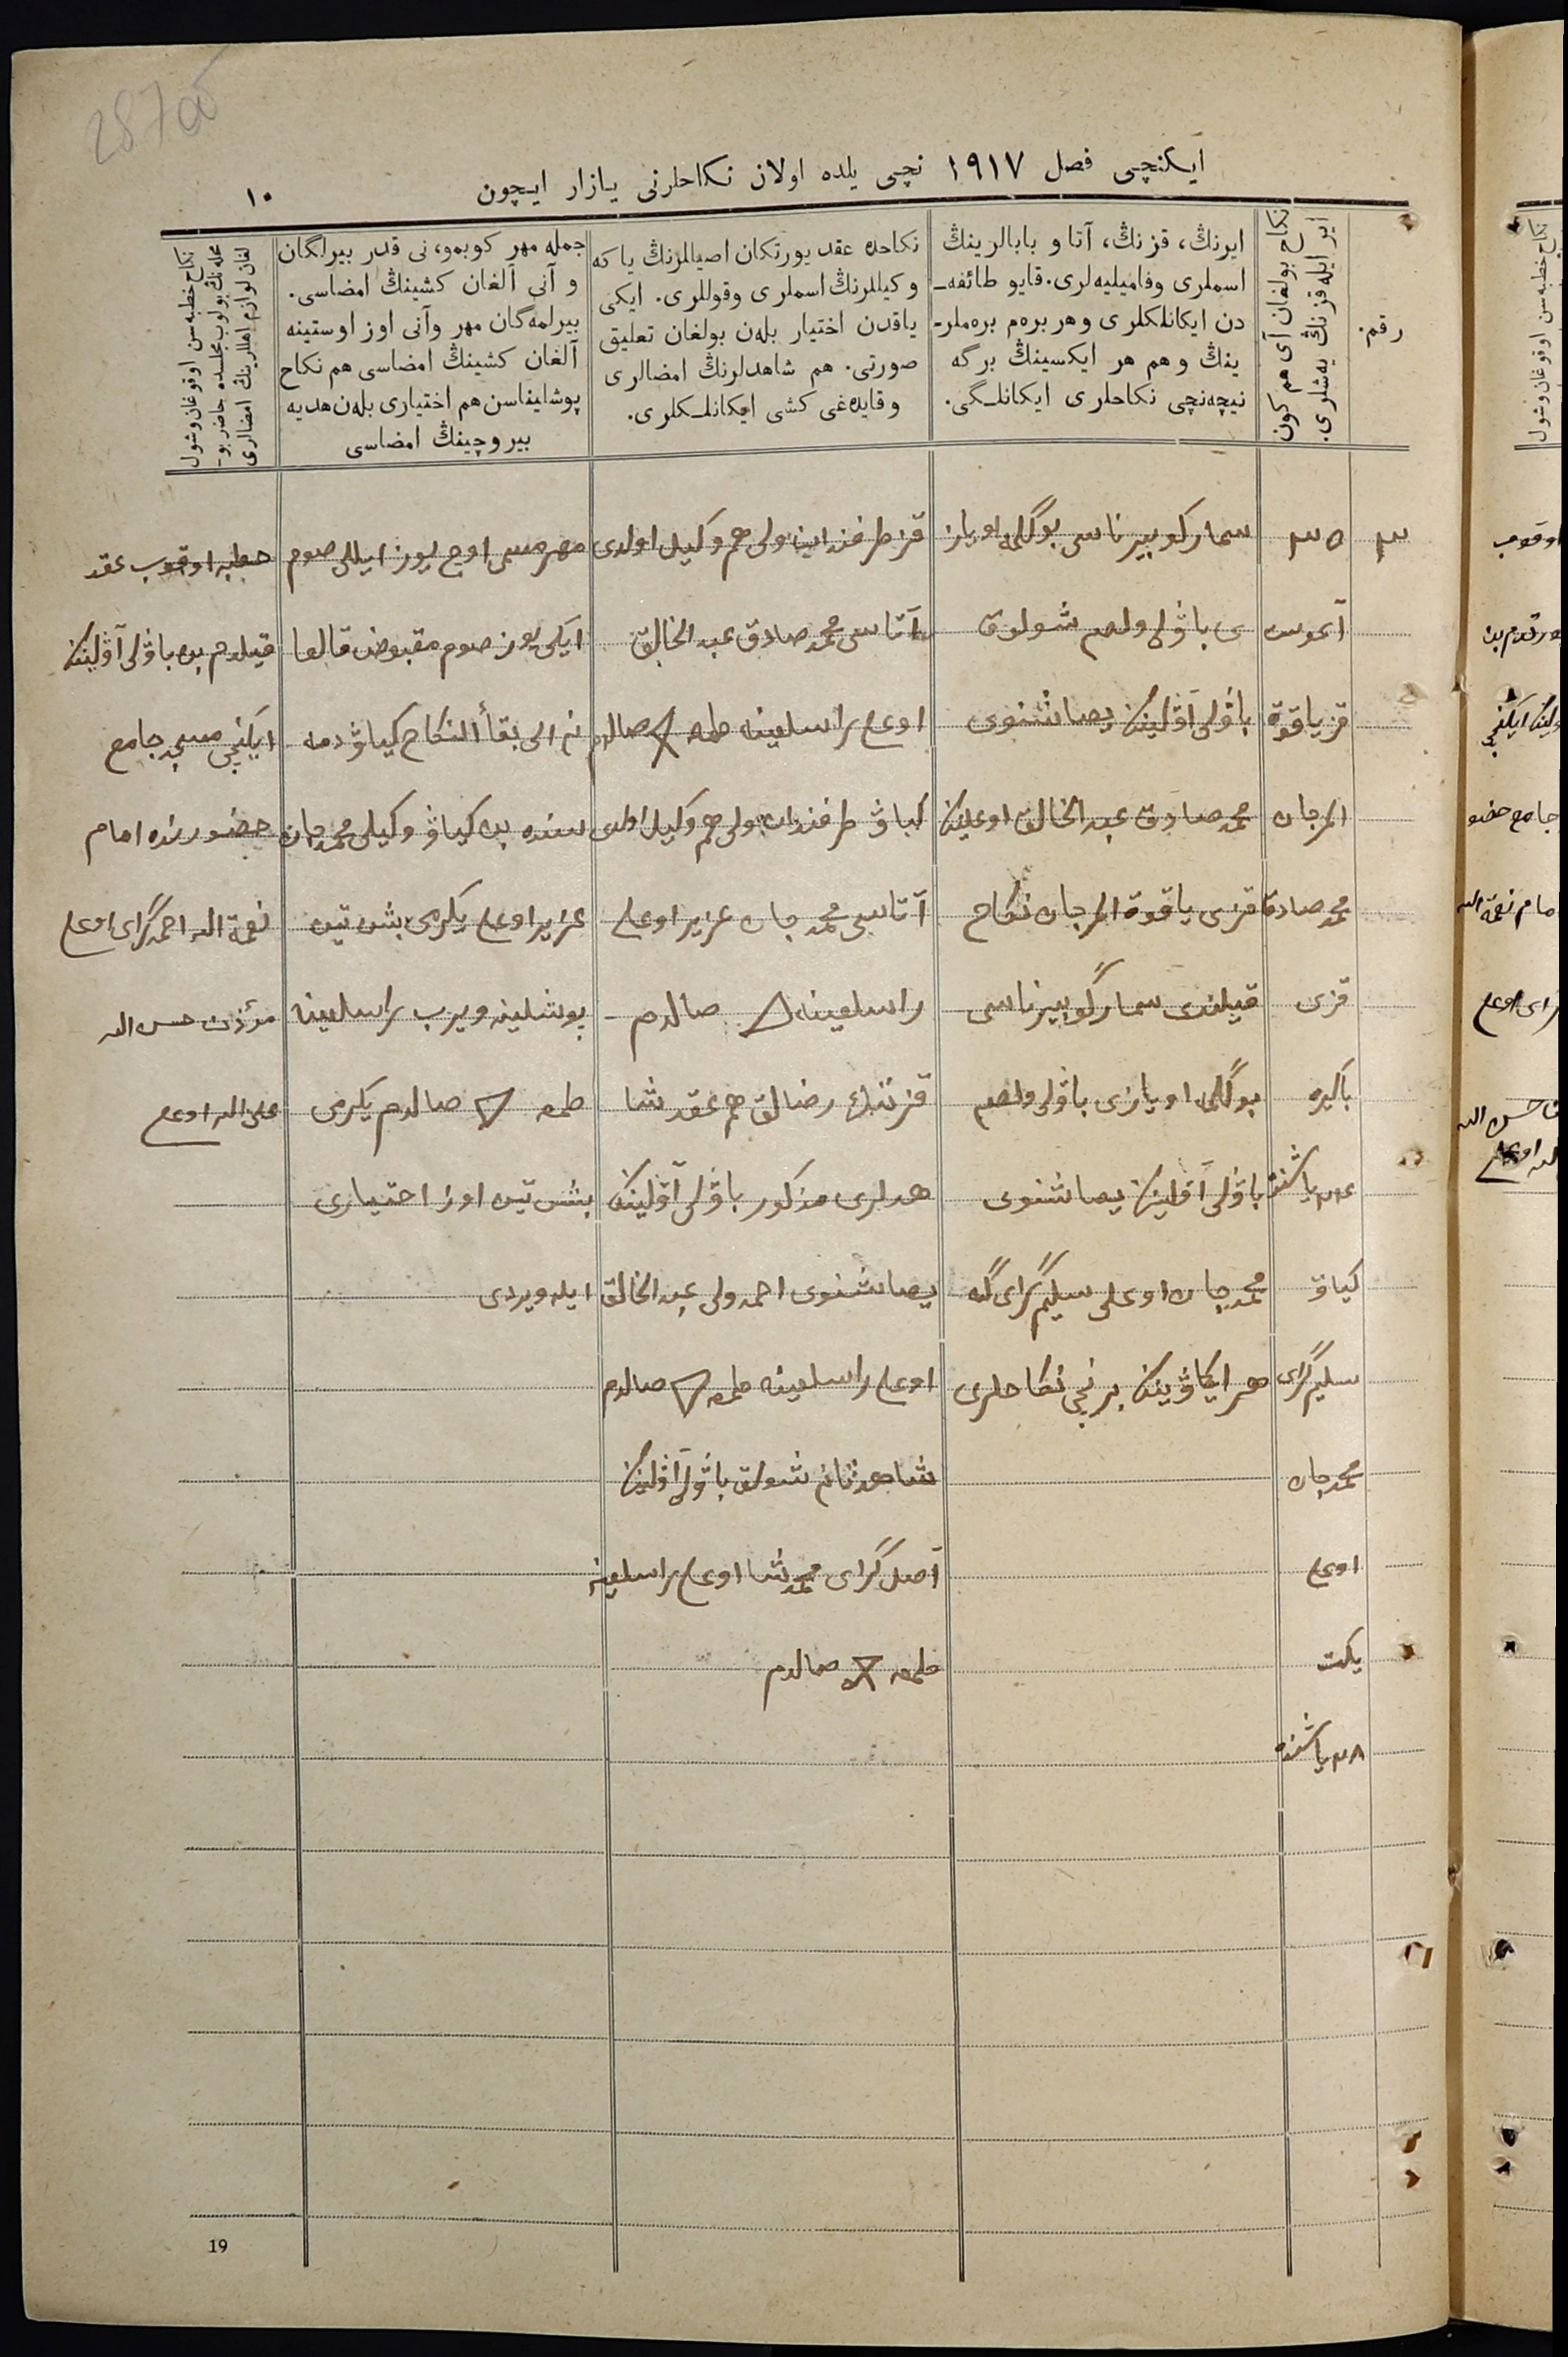 287 об
ایکنچی فصل ١٩١٧ نچی یلده اولان نکاحلرنی یازار ایچون
١٠
رقم.
نکاح بولغان آی هم کون
ایر ایله قزنڭ یەشلری.
ایرنڭ، قزنڭ، آتا و بابالرینڭ
اسملری وفامیلیەلری. قایو طائفه‌ـ
دن ایکانلکلری وهر برەم برەملر‌ـ
ینڭ وهم هر ایکسینڭ برگه
نیچەنچی نکاحلری ایکانلـگی.
نکاحدە عقد یورتکان اصیللرنڭ یا که
وکیللرنڭ اسملری وقوللری. ایکی
یاقدن اختیار بلەن بولغان تعلیق
صورتی. هم شاهدلرنڭ امضالری
وقایدەغی کشی ایکانلـکلری.
جمله مهر کوبمو، نی قدر بیرلگان
و آنی آلغان کشینڭ امضاسی.
بیرلمەگان مهر وآنی اوز اوستینه
آلغان کشینڭ امضاسی هم نکاح
پوشلیناسن هم اختیاری بلەن هدیه
بیروچینڭ امضاسی
نکاح خطبه‌سن اوقوغان وشول
محلەنڭ بولوب مجلسده حاضر بو‌ـ
لغان لوازم اهللرینڭ امضالری
٣
٣٥
آغوست
قز یاقوة
المرجان
محمد صادق
قزی
باکیره
٢٤ یاشنده
کیاۋ
سلیم‌گرای
محمدجان
اوغلی
یکت
٢٨ یاشنده
سمار گوبیرناسی بوگلمه اویاز
ی باۋلی ولصم شولوق
باۋلی آۋلینڭ یصاشنوی
محمد صادق عبد الخالق اوغلینڭ
قزی یاقوة المرجان نکاح
قیلندی سمار گوبیرناسی
بوگلمه اویازی باۋلی ولصم
باۋلی آۋلینڭ یصاشنوی
محمدجان اوغلی سلیم‌گرای‌گه
هر ایکاۋینڭ برنچی نکاحلری
قز طرفندان ولی هم وکیل اولدی
آتاسی محمد صادق عبد الخالق
اوغلی راسلغینه طمغه صالدم
کیاۋ طرفندان ولی هم وکیل اولدی
آتاسی محمد جان عزیز اوغلی
راسلغینه صالدم
قزننڭ رضالق هم عقد شا
هدلری مذکور باۋلی آۋلینڭ
یصاشنوی احمدولی عبد الخالق
اوغلی راسلغینه طمغه صالدم
شاهد ثانی شولوق باۋلی آۋلینڭ
آصل‌گرای محمدشا اوغلی راسلغینه
طمغه صالدم
مهر مسمی اوچ یوز ایللی صوم
ایکی یوز صوم مقبوض قالغا
نم الی بقأ النکاح کیاۋ ذمه
سنده بن کیاۋ وکیلی محمد جان
عزیز اوغلی یکرمی بش تین
پوشلینه ویرب راسلغینه
طمغه صالدم یکرمی
بش تین اوز اختیاری
ایله ویردی
خطبه اوقوب عقد
قیلدم بن باۋلی آۋلینڭ
ایکنچی مسجد جامع
حضورنده امام
نعمة الله احمدگرای اوغلی
مؤذن حسن الله
علی الله اوغلی
19